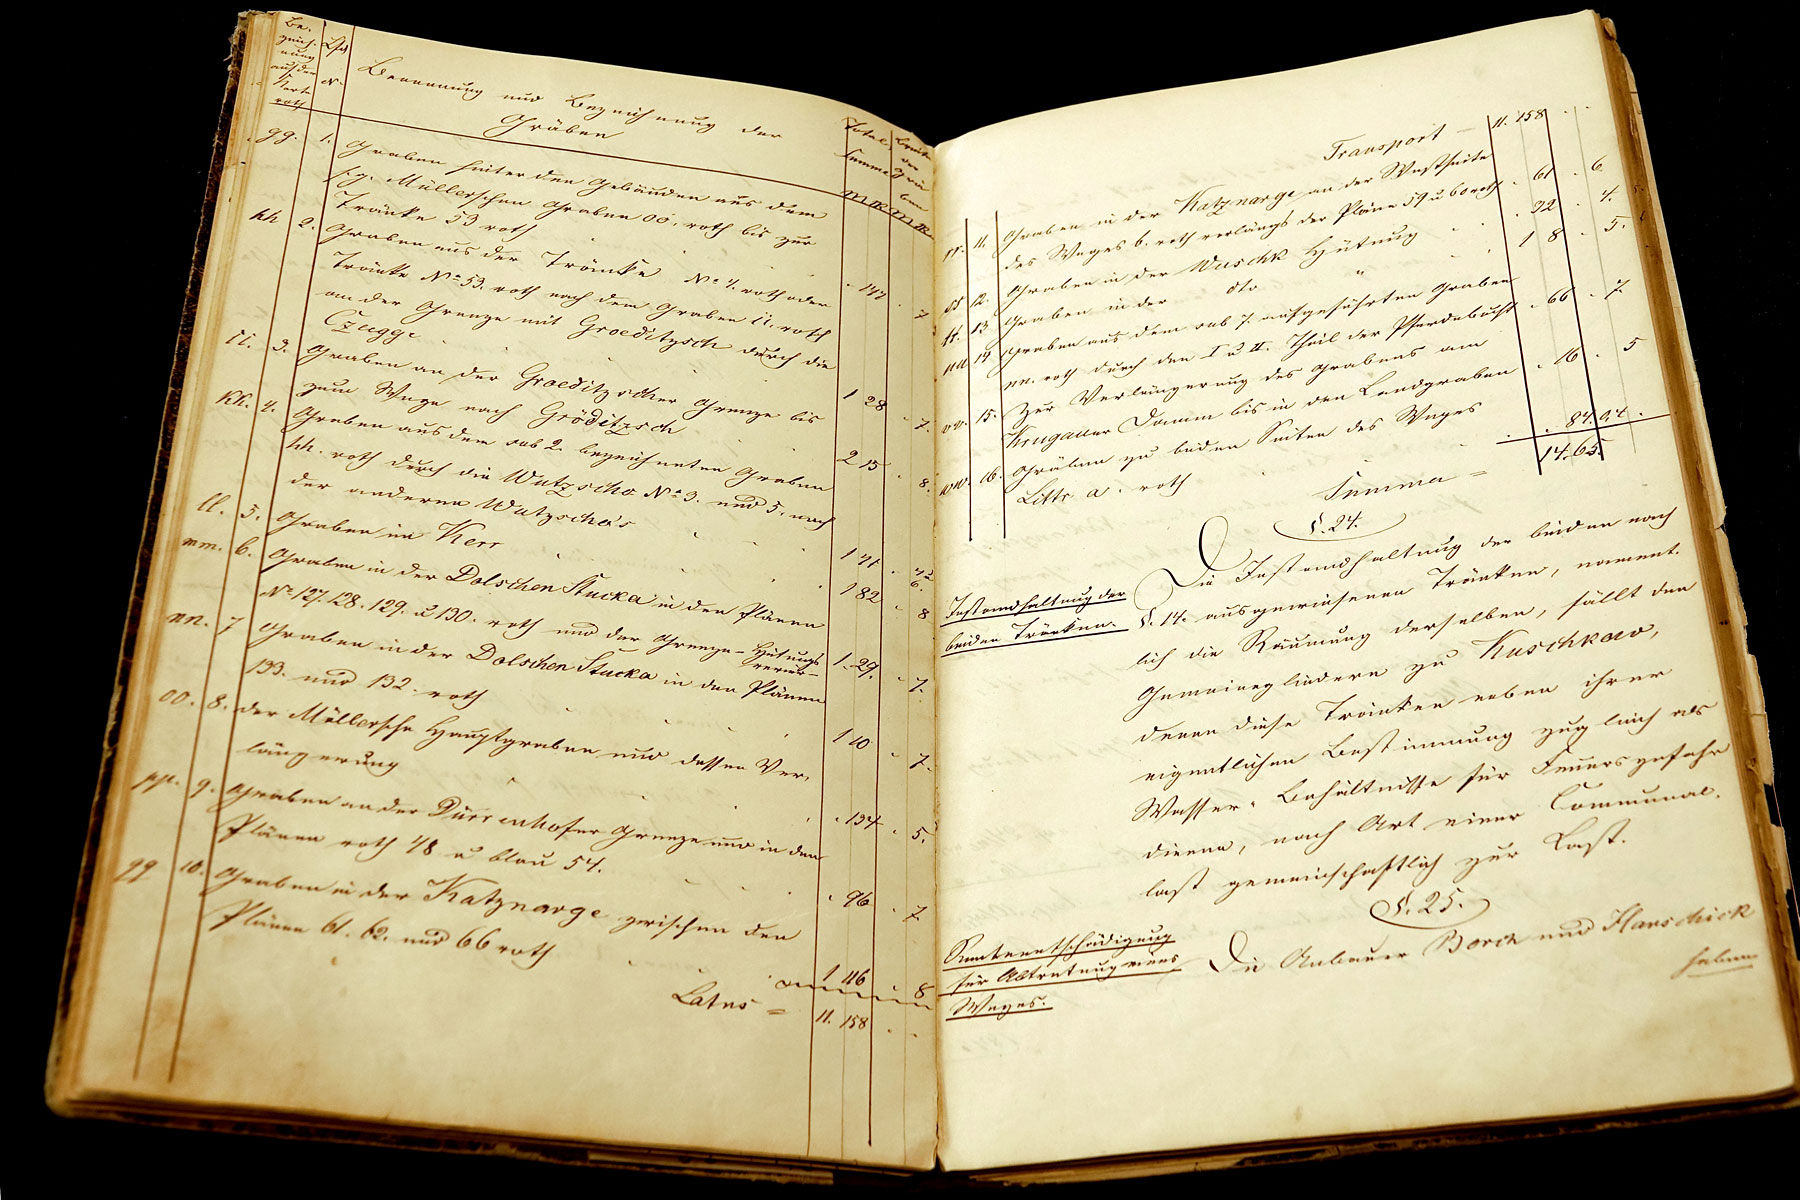 Be-
zeich-
nung
auf der
Karte
roth
Lfd
N.
Benennung und Bezeichnung der
Gräben
Total
Summe
Breite
der
Grä-
ben
gg. 1. Graben hinter den Gebäuden aus dem
s.g. Müllerschen Graben oo. roth bis zur
Tränke 53 roth . 147 .
hh 2. Graben aus der Tränke No 4. roth oder
Tränke No 53. roth nach dem Graben ii. roth
an der Grenze mit Groeditzsch durch die
Czugge 1 28 . 7.
ii. 3. Graben an der Groeditzscher Grenze bis
zum Wege nach Gröditzsch 2 15 . 8.
kk. 4. Graben aus dem sub 2. bezeichneten Graben
hh. roth durch die Wutzscho No 3. und 5. nach
der anderen Wutzscho's 1 41
ll. 5. Graben im Kerr 1 82 . 8
mm. 6. Graben in der Dolschen Stucka in den Plänen
No 127. 128. 129. u 130. roth und der Grenze Hütungs
1. 29. . 7.
nn. 7 Graben in der Dolschen Stucka in den Plänen
133. und 132. roth 1 10 . 7.
oo. 8. der Müllersche Hauptgraben und dessen Ver-
längerung . 134 . 5.
pp. 9. Graben an der Dürrenhofer Grenze und in den
Plänen roth 48 u blau 54. . 96 . 7.
qq 10. Graben in der Katznarge zwischen den
Plänen 61. 62. und 66 roth 1 116 . 8
Latus = 11. 158 . .
Transport — 11. 158 . .
rr. 11. Graben in der Katznarge an der Westseite
des Weges b. roth verlängs der Pläne 59 u 60 roth . 61 . 6.
ss 12. Graben in der Wuschk Hütung . 92 . 4.
tt. 13. Graben in der dto " 1 8 . 5.
uu 14 Graben aus dem sub 7. aufgeführten Graben
nn. roth durch den I u II. Theil der Pferdebucht . 66 . 7.
vv. 15. Zur Verlängerung des Grabens am
Krugauer Damm bis in den Landgraben . 16 . 5
ww. 16. Gräben zu beiden Seiten des Weges
Littr a. roth
Summa = 14. 65.
§. 24.
Instandhaltung der
beiden Tränken.
Die Instandhaltung der beiden nach
§. 14. ausgewiesenen Tränken, nament-
lich die Räumung derselben, fällt den
Gemeinegliedern zu Kuschkow,
denen diese Tränken neben ihrer
eigentlichen Bestimmung zugleich als
Wasser-Behältnisse für Feuersgefahr
dienen, nach Art einer Communal-
last gemeinschaftlich zur Last.
§. 25.
Rentenentschädigung
für Abtretung eines
Weges.
Die Anbauer Borck und Hanschick
haben